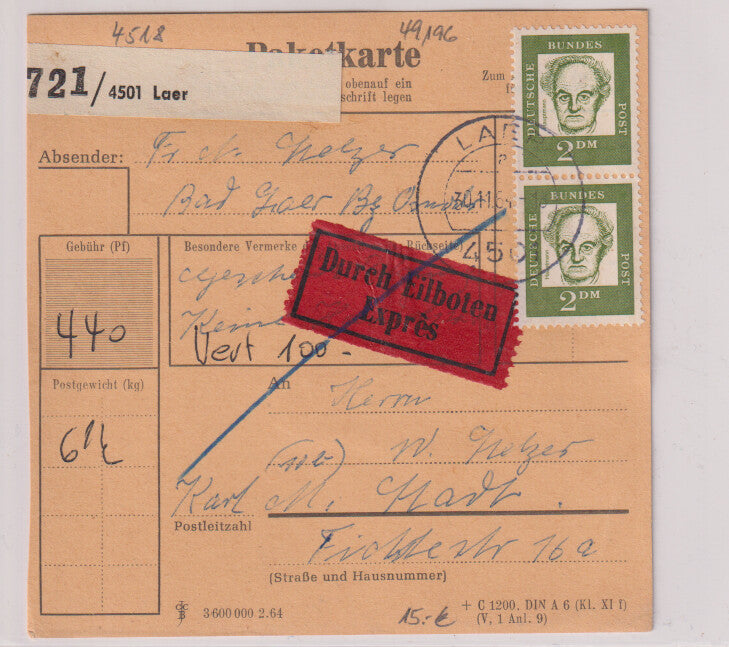 4518 49,196
Paketkarte
721/4501 Laer
obenauf ein
schrift legen
Zum
Absender: Fr. M. Melzer
Bad Laer Bz Osnabr
LAER
30.11.64
450
DEUTSCHE BUNDES POST
2 DM
DEUTSCHE BUNDES POST
2 DM
Gebühr (Pf)
Besondere Vermerke Rückseite
440
Wert 100.-
Durch Eilboten
Exprès
Postgewicht (kg)
6 1/2
An Herrn
W. Melzer
Karl M. Stadt
Postleitzahl
Fichtestr 16a
(Straße und Hausnummer)
3 600 000 2.64
15.-€
+ C 1200, DIN A 6 (Kl. XI f)
(V, 1 Anl. 9)